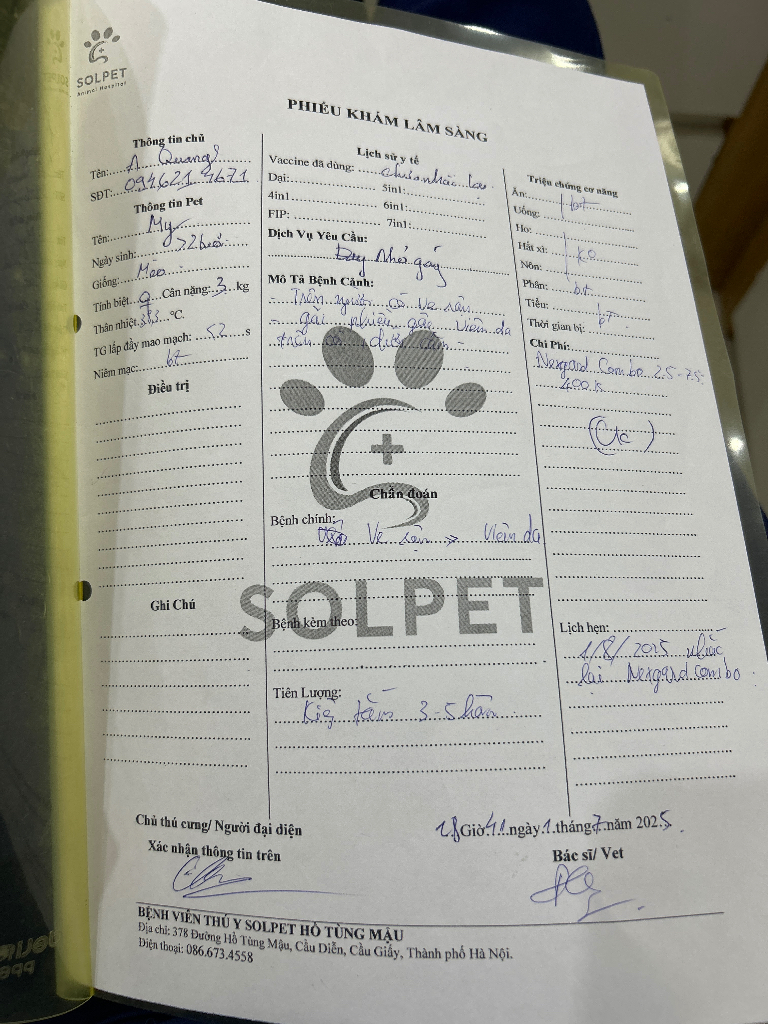 SOLPET
Animal Hospital
PHIẾU KHÁM LÂM SÀNG
Thông tin chủ
Tên: A Quang
SĐT: 094621 4671
Thông tin Pet
Tên: My
Ngày sinh: >2 tuổi
Giống: Mèo
Tính biệt ♀ Cân nặng: 3 kg
Thân nhiệt 38.3 °C.
TG lấp đầy mao mạch: <2 s
Niêm mạc: bt
Điều trị
Ghi Chú
Lịch sử y tế
Vaccine đã dùng: chưa nhắc lại
Dại: 5in1:
4in1 6in1:
FIP: 7in1:
Dịch Vụ Yêu Cầu:
Nhỏ gáy
Mô Tả Bệnh Cảnh:
- Trên người có ve rận
- gãi nhiều gây viêm da
trên cổ dưới cằm
Chẩn đoán
Bệnh chính:
Ve rận => Viêm da
SOLPET
Bệnh kèm theo:
Tiên Lượng:
Kiêng tắm 3-5 hôm
Triệu chứng cơ năng
Ăn: bt
Uống:
Ho:
Hắt xì: Ko
Nôn:
Phân: bt
Tiểu: bt
Thời gian bị:
Chi Phí:
Nexgard Combo 2.5-7.5:
400k
(Ck)
Lịch hẹn:
1/8/2025 nhắc
lại Nexgard combo
18 Giờ 41 ngày 1 tháng 7 năm 2025.
Chủ thú cưng/ Người đại diện
Xác nhận thông tin trên
Bác sĩ/ Vet
BỆNH VIỆN THÚ Y SOLPET HỒ TÙNG MẬU
Địa chỉ: 378 Đường Hồ Tùng Mậu, Cầu Diễn, Cầu Giấy, Thành phố Hà Nội.
Điện thoại: 086.673.4558